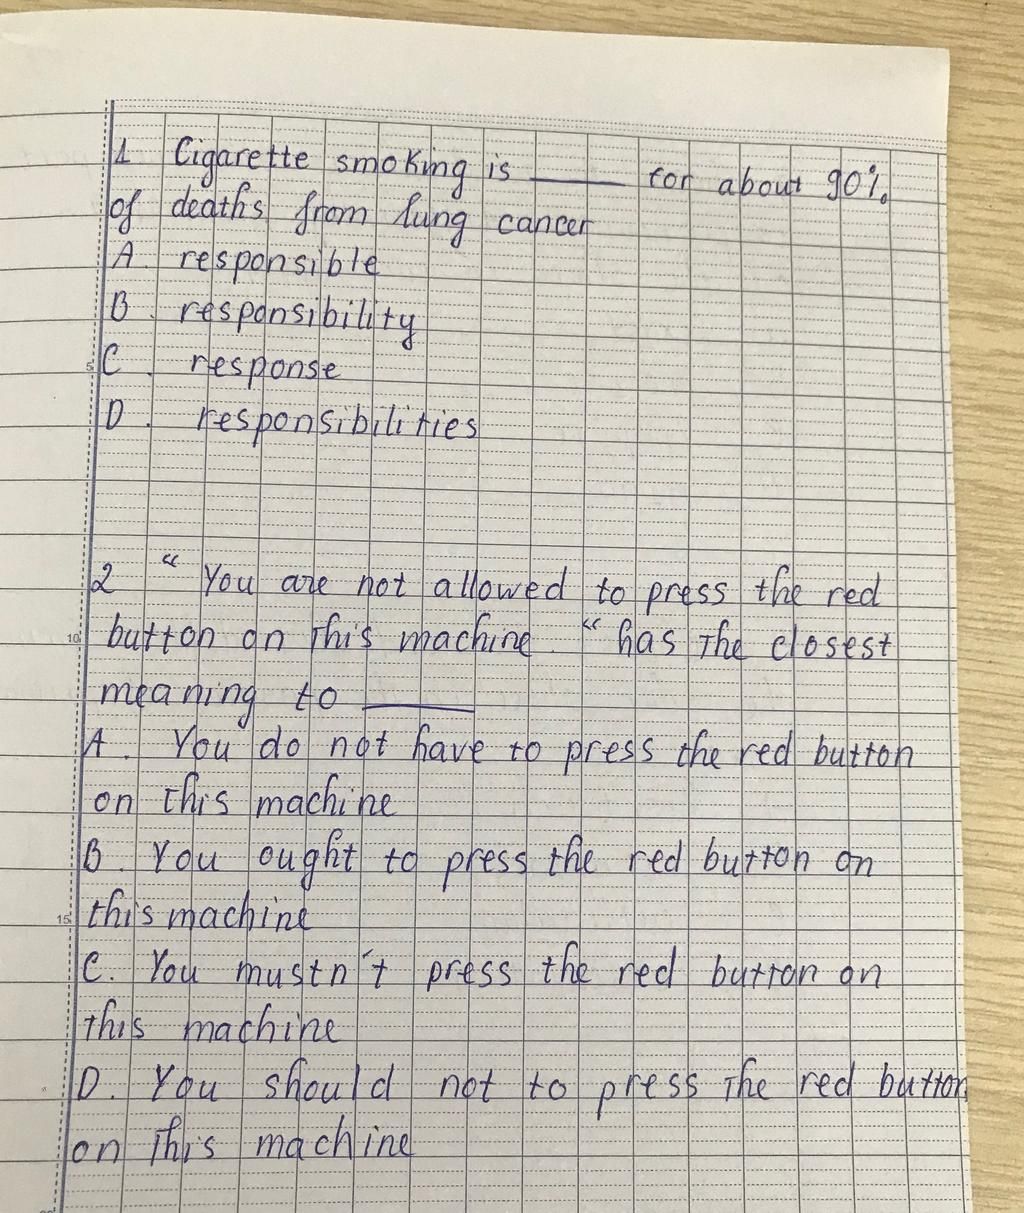 1 Cigarette smoking is _____ for about 90%
of deaths from lung cancer
A. responsible
B. responsibility
5 C. response
D. responsibilities
2 “ You are not allowed to press the red
10 button on this machine. “ has the closest
meaning to _____
A. You do not have to press the red button
on this machine
B. You ought to press the red button on
15 this machine
C. You mustn't press the red button on
this machine
D. You should not to press the red button
on this machine